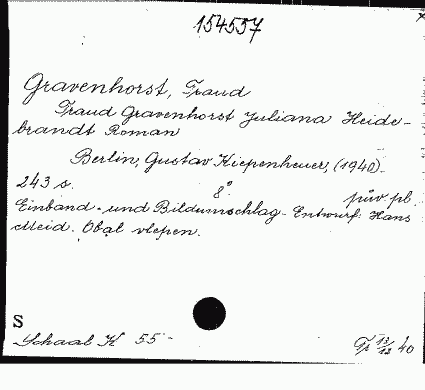 154557
Gravenhorst, Traud
Traud Gravenhorst Juliana Heide-
brandt Roman
Berlin, Gustav Kiepenheuer, (1940).
243 s. 8°. pův. pl.
Einband- und Bildumschlag- Entwurf: Hans
Meid. Obal vlepen.
S
Schaal K 55-
12/12 40